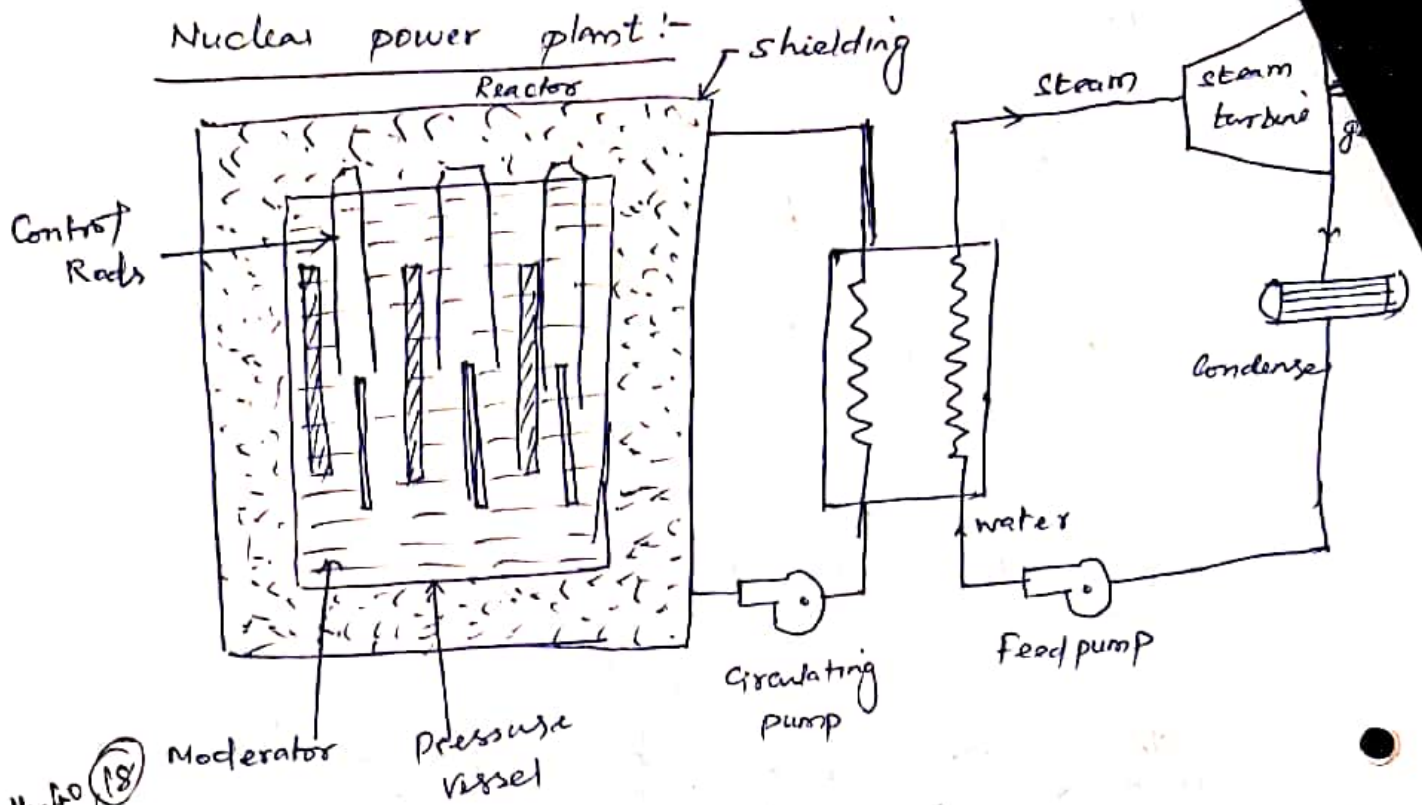 Nuclear power plant:-
shielding
Reactor
Steam
steam
turbine
Control
Rods
Condenser
water
Feed pump
Circulating
pump
Moderator
Pressure
vessel
18